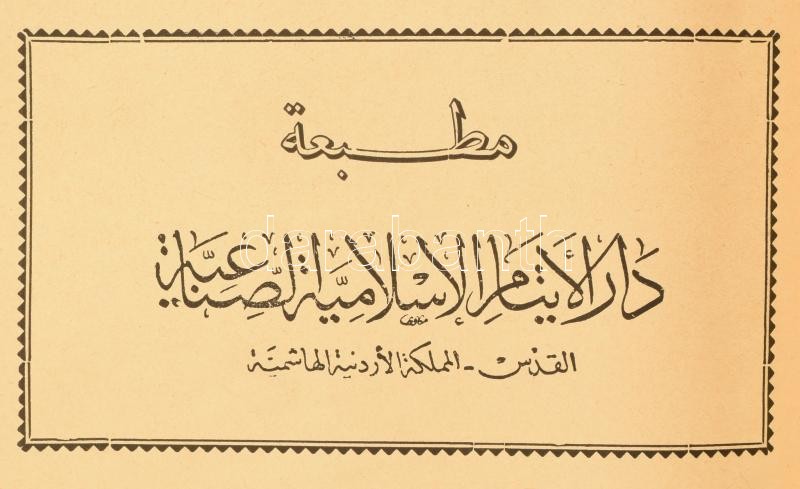 مطبعة
دَار الأيتَام الإسْلاميَّة الصِّناعيَّة
darabanth
القدس - المملكة الأردنية الهاشمية